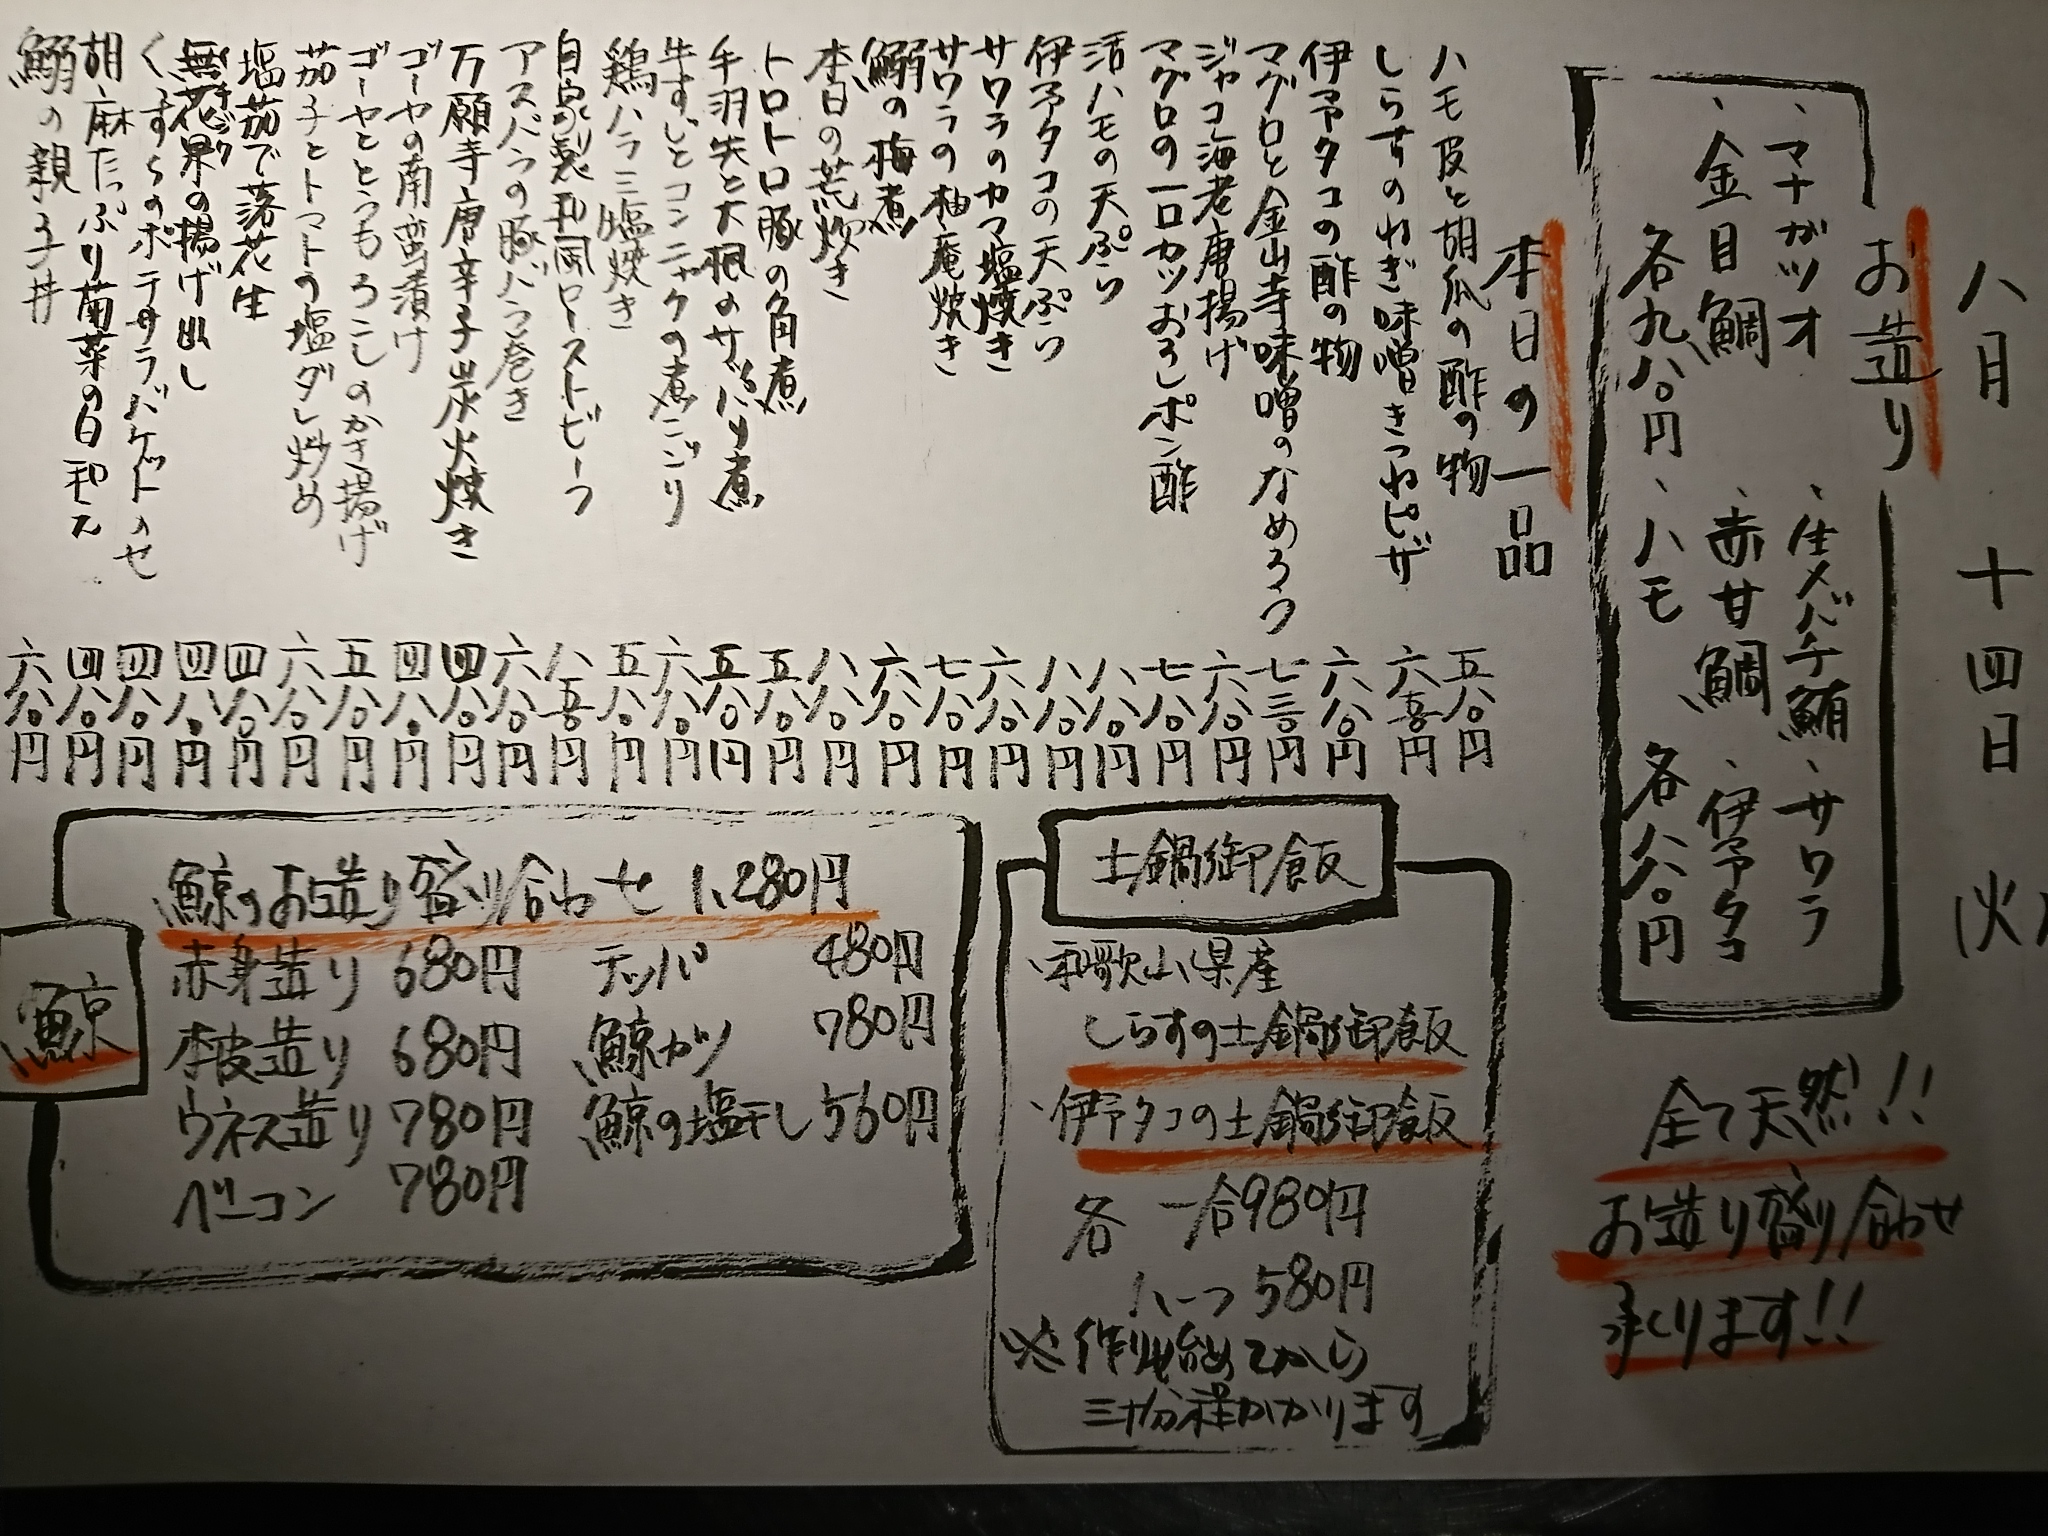 八月 十四日 (火)
お造り
、マナガツオ 、生メバチ鮪 、サワラ
、金目鯛 、赤甘鯛 、伊予タコ
各九八〇円 、ハモ 各八八〇円
全て天然!!
お造り盛り合わせ
承ります!!
本日の一品
ハモ皮と胡瓜の酢の物 五八〇円
しらすのねぎ味噌きつねピザ 六五〇円
伊予タコの酢の物 六八〇円
マグロと金山寺味噌のなめろう 七三〇円
ジャコ海老唐揚げ 六八〇円
マグロの一口カツおろしポン酢 七八〇円
活ハモの天ぷら 八八〇円
伊予タコの天ぷら 八八〇円
サワラのカマ塩焼き 六八〇円
サワラの柚庵焼き 七八〇円
鰯の梅煮 六八〇円
本日の荒炊き 八八〇円
トロトロ豚の角煮 五八〇円
手羽先と大根のサッパリ煮 五八〇円
牛すじとコンニャクの煮こごり 六八〇円
鶏ハラミ塩焼き 五八〇円
自家製和風ローストビーフ 八五〇円
アスパラの豚バラ巻き 六八〇円
万願寺唐辛子炭火焼き 四八〇円
ゴーヤの南蛮漬け 四八〇円
ゴーヤととうもろこしのかき揚げ 五八〇円
茄子とトマトの塩ダレ炒め 六八〇円
塩茹で落花生 四八〇円
無花果の揚げ出し 四八〇円
イチジク
くずしポテサラバケットのせ 四八〇円
胡麻たっぷり菊菜の白和え 四八〇円
鰯の親子丼 六八〇円
土鍋御飯
、和歌山県産
しらすの土鍋御飯
、伊予タコの土鍋御飯
各 一合980円
ハーフ 580円
※作り始めてから
三十分程かかります
鯨
鯨のお造り盛り合わせ 1,280円
赤身造り 680円 テッパ 480円
本皮造り 680円 鯨カツ 780円
ウネス造り 780円 鯨の塩干し 560円
ベーコン 780円